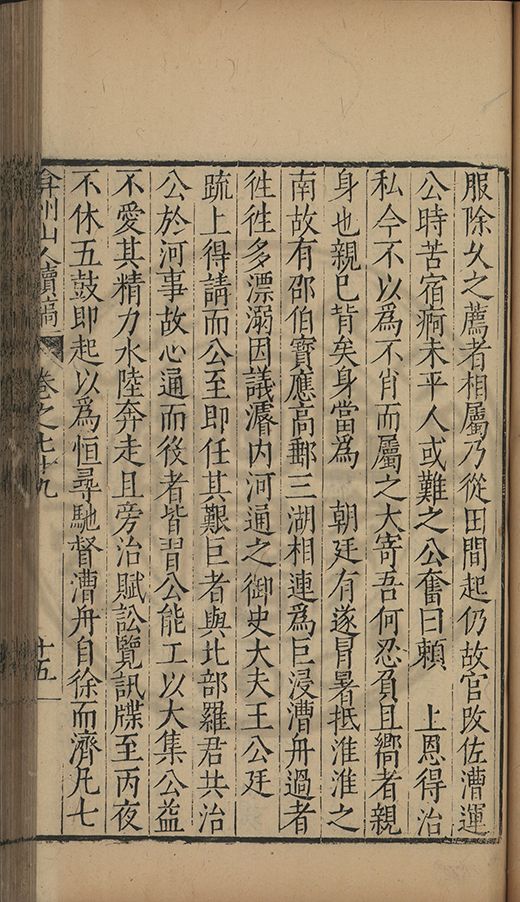 服除久之薦者相屬乃從田間起仍故官改佐漕運
公時苦宿痾未平人或難之公奮曰賴　上恩得治
私今不以爲不肖而屬之大寄吾何忍負且嚮者親
身也親已背矣身當爲　朝廷有遂冒暑抵淮淮之
南故有邵伯寶應高郵三湖相連爲巨浸漕舟過者
徃徃多漂溺因議濬内河通之御史大夫王公廷
䟽上得請而公至即任其艱巨者與北部羅君共治
公於河事故心通而役者皆習公能工以大集公益
不愛其精力水陸奔走且旁治賦訟覽訊牒至丙夜
不休五鼓即起以爲恒尋馳督漕舟自徐而濟凡七
弇州山人續稿　卷之七十九　十五